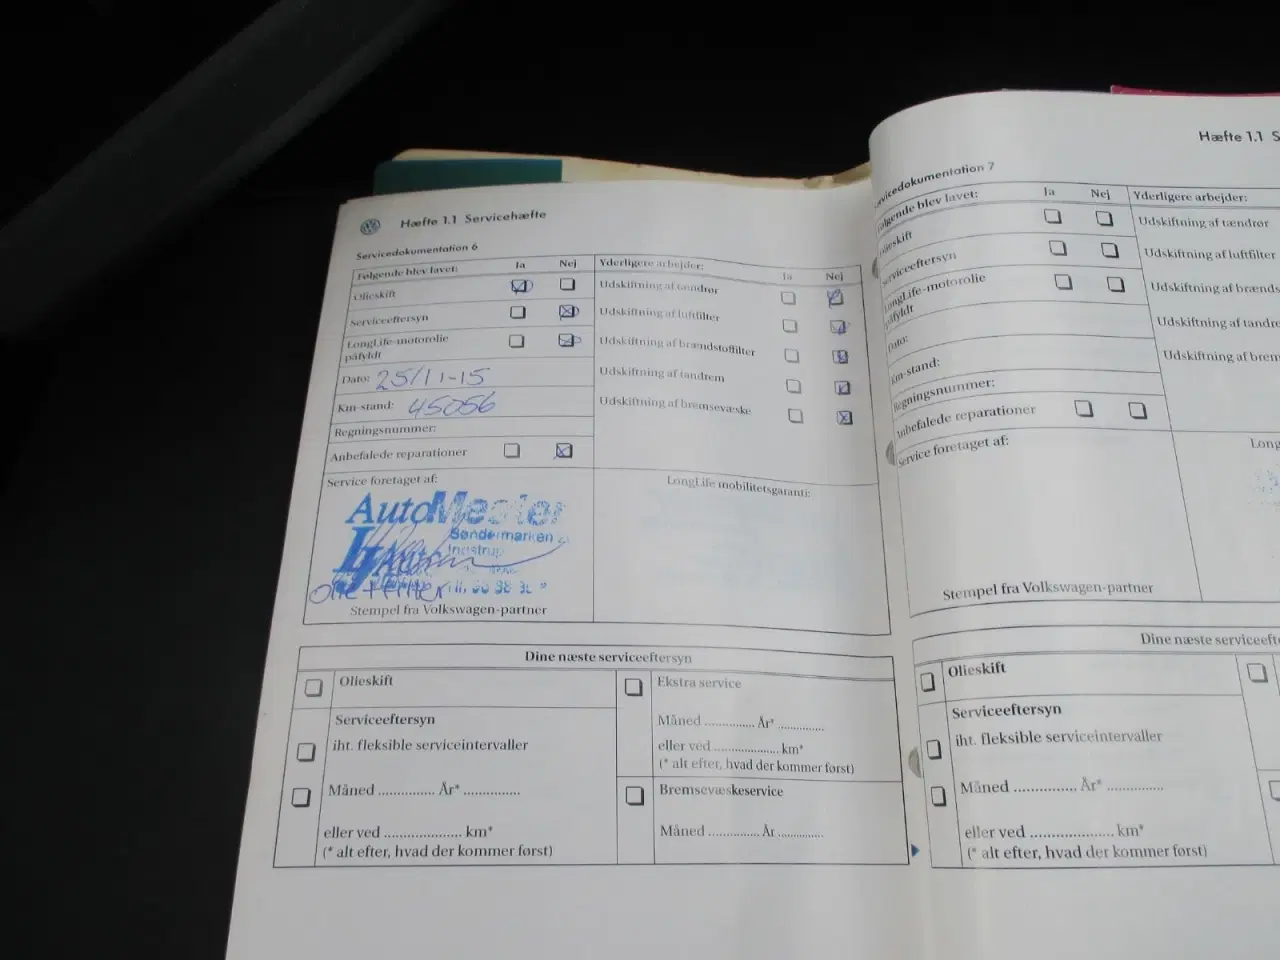 Hæfte 1.1 Servicehæfte
Servicedokumentation 6
Følgende blev lavet: Ja Nej
Olieskift
Serviceeftersyn
LongLife-motorolie
påfyldt
Dato: 25/11-15
Km-stand: 45056
Regningsnummer:
Anbefalede reparationer
Service foretaget af:
AutoMester
Søndermarken
Ingstrup
olie + filter
Stempel fra Volkswagen-partner
Yderligere arbejder: Ja Nej
Udskiftning af tændrør
Udskiftning af luftfilter
Udskiftning af brændstoffilter
Udskiftning af tandrem
Udskiftning af bremsevæske
LongLife mobilitetsgaranti:
Dine næste serviceeftersyn
Olieskift
Serviceeftersyn
iht. fleksible serviceintervaller
Måned .............. År* ..............
eller ved ................... km*
(* alt efter, hvad der kommer først)
Ekstra service
Måned ............. År* ............
eller ved ................. km*
(* alt efter, hvad der kommer først)
Bremsevæskeservice
Måned ............. År ............
Hæfte 1.1 S
Servicedokumentation 7
Følgende blev lavet: Ja Nej
Olieskift
Serviceeftersyn
LongLife-motorolie
påfyldt
Dato:
Km-stand:
Regningsnummer:
Anbefalede reparationer
Service foretaget af:
Stempel fra Volkswagen-partner
Yderligere arbejder:
Udskiftning af tændrør
Udskiftning af luftfilter
Udskiftning af brænds
Udskiftning af tandre
Udskiftning af brem
Long
Dine næste serviceeft
Olieskift
Serviceeftersyn
iht. fleksible serviceintervaller
Måned ................ År* ..............
eller ved ..................... km*
(* alt efter, hvad der kommer først)